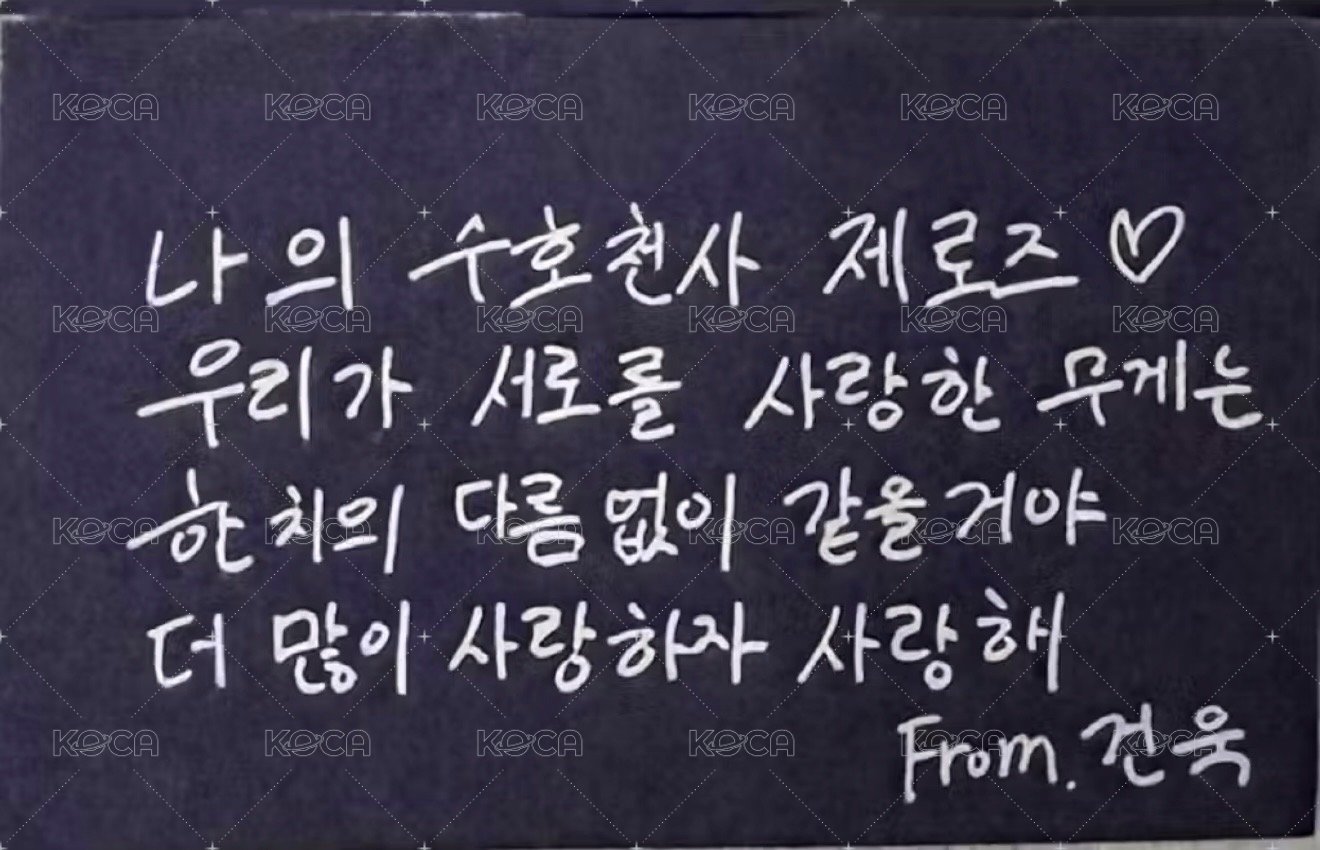 나의 수호천사 제로즈 ♡
우리가 서로를 사랑한 무게는
한 치의 다름 없이 같을거야
더 많이 사랑하자 사랑해
From. 건욱
KOCA KOCA KOCA KOCA KOCA KOCA
KOCA KOCA KOCA KOCA KOCA KOCA
KOCA KOCA KOCA KOCA KOCA KOCA
KOCA KOCA KOCA KOCA KOCA KOCA